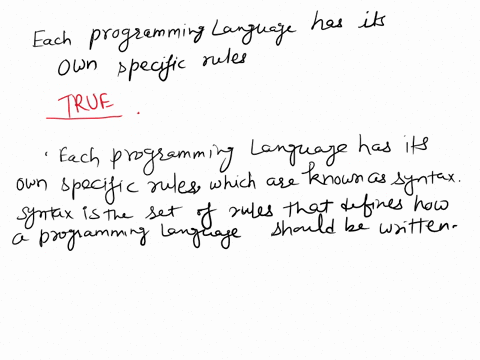 Each programming Language has its
own specific rules
TRUE .
. Each programming Language has its
own specific rules, which are known as syntax.
syntax is the set of rules that defines how
a programming Language should be written.